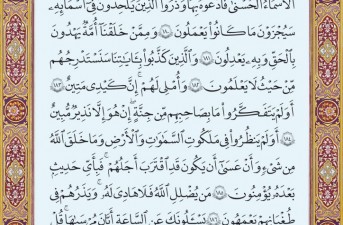 الأَسْمَاءُ الْحُسْنَى فَادْعُوهُ بِهَا وَذَرُوا الَّذِينَ يُلْحِدُونَ فِي أَسْمَائِهِ
سَيُجْزَوْنَ مَا كَانُوا يَعْمَلُونَ ﴿١٨٠﴾ وَمِمَّنْ خَلَقْنَا أُمَّةٌ يَهْدُونَ
بِالْحَقِّ وَبِهِ يَعْدِلُونَ ﴿١٨١﴾ وَالَّذِينَ كَذَّبُوا بِآيَاتِنَا سَنَسْتَدْرِجُهُم
مِّنْ حَيْثُ لَا يَعْلَمُونَ ﴿١٨٢﴾ وَأُمْلِي لَهُمْ إِنَّ كَيْدِي مَتِينٌ ﴿١٨٣﴾
أَوَلَمْ يَتَفَكَّرُوا مَا بِصَاحِبِهِم مِّن جِنَّةٍ إِنْ هُوَ إِلَّا نَذِيرٌ مُّبِينٌ
﴿١٨٤﴾ أَوَلَمْ يَنظُرُوا فِي مَلَكُوتِ السَّمَاوَاتِ وَالْأَرْضِ وَمَا خَلَقَ اللَّهُ
مِن شَيْءٍ وَأَنْ عَسَى أَن يَكُونَ قَدِ اقْتَرَبَ أَجَلُهُمْ فَبِأَيِّ حَدِيثٍ
بَعْدَهُ يُؤْمِنُونَ ﴿١٨٥﴾ مَن يُضْلِلِ اللَّهُ فَلَا هَادِيَ لَهُ وَيَذَرُهُمْ فِي
طُغْيَانِهِمْ يَعْمَهُونَ ﴿١٨٦﴾ يَسْأَلُونَكَ عَنِ السَّاعَةِ أَيَّانَ مُرْسَاهَا قُلْ